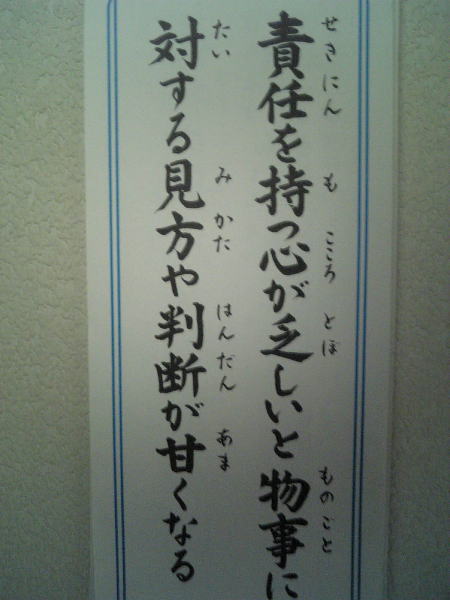 せきにん も こころ とぼ ものごと
責任を持つ心が乏しいと物事に
たい みかた はんだん あま
対する見方や判断が甘くなる